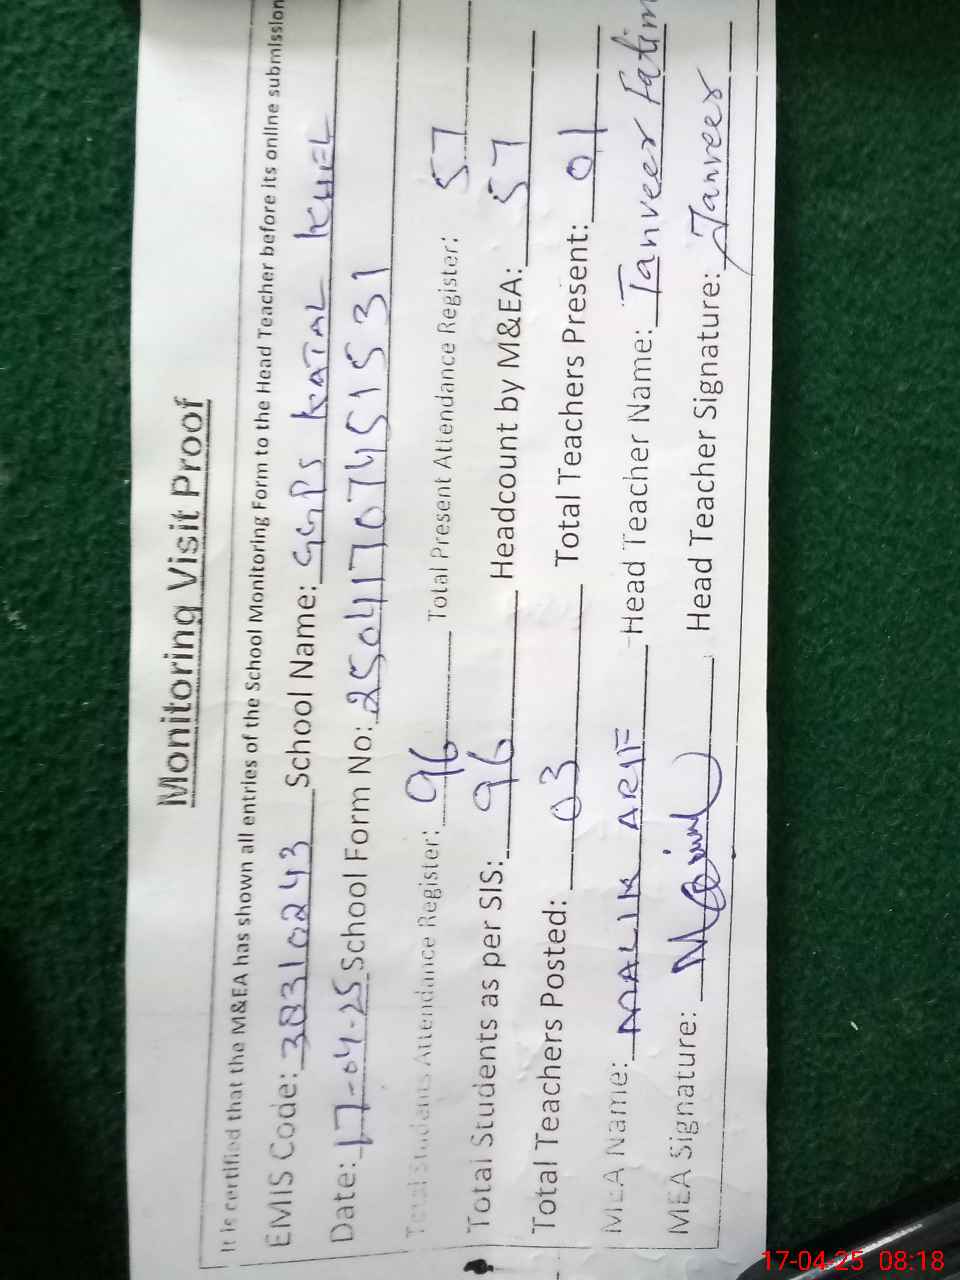 Monitoring Visit Proof
It is certified that the M&EA has shown all entries of the School Monitoring Form to the Head Teacher before its online submission
EMIS Code: 38310243 School Name: GGPS KATAL KHEL
Date: 17-04-25 School Form No: 250417074515 31
Total Students Attendance Register: 96 Total Present Attendance Register: 57
Total Students as per SIS: 96 Headcount by M&EA: 57
Total Teachers Posted: 03 Total Teachers Present: 01
MEA Name: MALIK ARIF Head Teacher Name: Tanveer Fatim
MEA Signature: Head Teacher Signature: Tanveer
17-04-25 08:18